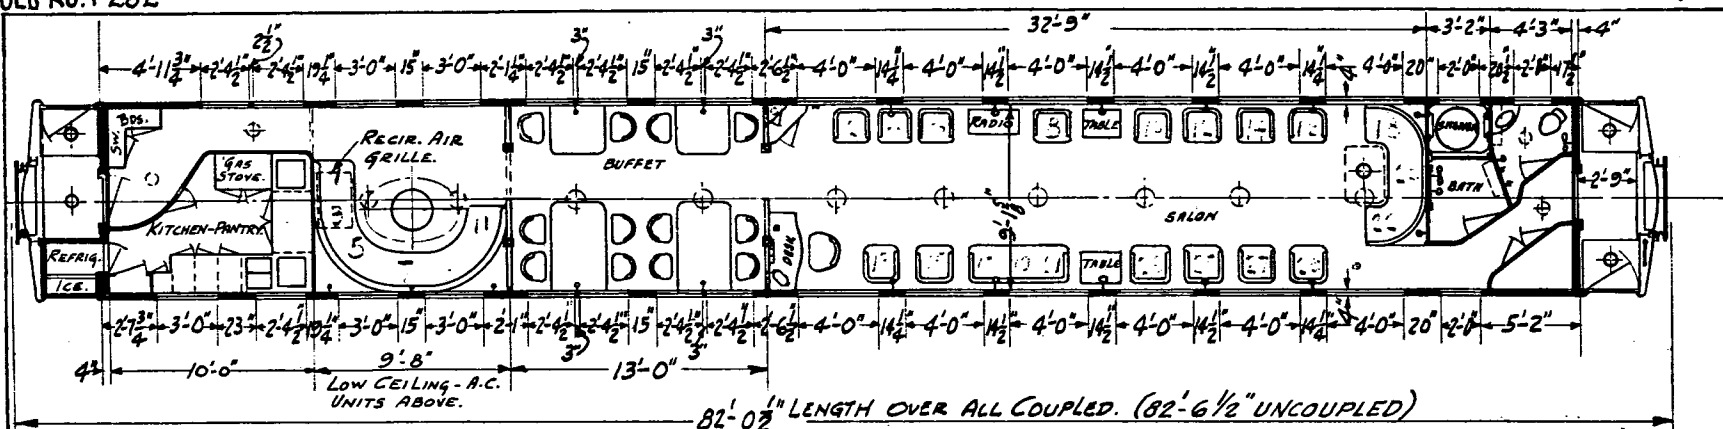 32'-9" 3'-2" 4'-3" 4"
2½" 3" 3"
4'-11¾" 2'-4½" 2'-4½" 19¼" 3'-0" 15" 3'-0" 2'-1¼" 2'-4½" 2'-4½" 15" 2'-4½" 2'-4½" 2'-6½" 4'-0" 14¼" 4'-0" 14½" 4'-0" 14½" 4'-0" 14½" 4'-0" 14¼" 4" 4'-0" 20" 2'-0" 20½" 2'-0" 17½"
SW. BDS.
RECIR. AIR
GRILLE.
GAS
STOVE.
BUFFET
RADIO
TABLE
SHOWER
KITCHEN-PANTRY
9'-1⅝"
SALON
BATH
2'-9"
REFRIG.
ICE.
DESK
TABLE
2'-7¾" 3'-0" 23" 2'-4½" 19¼" 3'-0" 15" 3'-0" 2'-1" 2'-4½" 2'-4½" 15" 2'-4½" 2'-4½" 2'-6½" 4'-0" 14¼" 4'-0" 14½" 4'-0" 14½" 4'-0" 14½" 4'-0" 14¼" 4" 4'-0" 20" 2'-0" 5'-2"
3" 3"
4" 10'-0" 9'-8" 13'-0"
LOW CEILING - A.C.
UNITS ABOVE.
82'-0½" LENGTH OVER ALL COUPLED. (82'-6 1/2" UNCOUPLED)